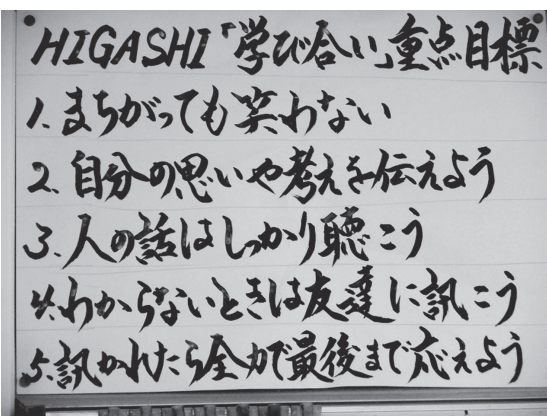 HIGASHI「学び合い」重点目標
1. まちがっても笑わない
2. 自分の思いや考えを伝えよう
3. 人の話はしっかり聴こう
4. わからないときは友達に訊こう
5. 訊かれたら全力で最後まで応えよう